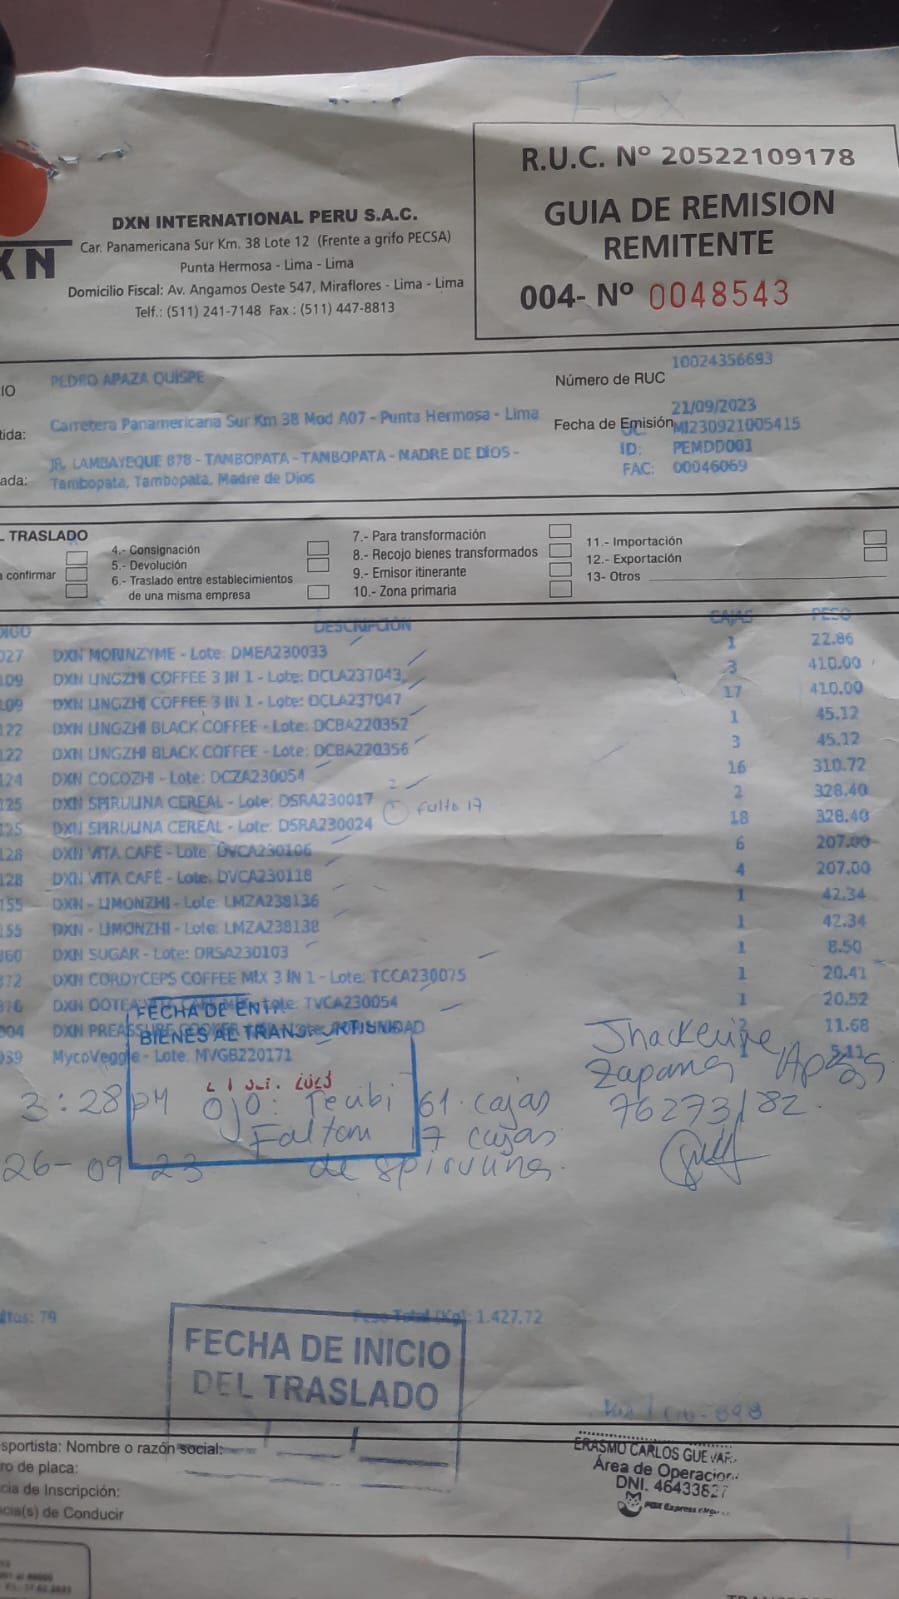 Fox
R.U.C. Nº 20522109178
GUIA DE REMISION
REMITENTE
004- Nº 0048543
XN
DXN INTERNATIONAL PERU S.A.C.
Car. Panamericana Sur Km. 38 Lote 12 (Frente a grifo PECSA)
Punta Hermosa - Lima - Lima
Domicilio Fiscal: Av. Angamos Oeste 547, Miraflores - Lima - Lima
Telf.: (511) 241-7148 Fax : (511) 447-8813
IO PEDRO APAZA QUISPE Número de RUC 10024356693
tida: Carretera Panamericana Sur Km 38 Mod A07 - Punta Hermosa - Lima Fecha de Emisión 21/09/2023
MI230921005415
ada: JR. LAMBAYEQUE 878 - TAMBOPATA - TAMBOPATA - MADRE DE DÍOS - ID: PEMDD001
Tambopata, Tambopata, Madre de Dios FAC: 00046069
L TRASLADO
a confirmar
4.- Consignación
5.- Devolución
6.- Traslado entre establecimientos
de una misma empresa
7.- Para transformación
8.- Recojo bienes transformados
9.- Emisor itinerante
10.- Zona primaria
11.- Importación
12.- Exportación
13- Otros
DIGO DESCRIPCIÓN CAJAS PESO
027 DXN MORINZYME - Lote: DMEA230033 1 22.86
109 DXN LINGZHI COFFEE 3 IN 1 - Lote: DCLA237043 3 410.00
109 DXN LINGZHI COFFEE 3 IN 1 - Lote: DCLA237047 17 410.00
122 DXN LINGZHI BLACK COFFEE - Lote: DCBA220352 1 45.12
122 DXN LINGZHI BLACK COFFEE - Lote: DCBA220356 3 45.12
124 DXN COCOZHI - Lote: DCZA230054 16 310.72
125 DXN SPIRULINA CEREAL - Lote: DSRA230017 2 328.40
125 DXN SPIRULINA CEREAL - Lote: DSRA230024 1 Falto 17 18 328.40
128 DXN VITA CAFÉ - Lote: DVCA230106 6 207.00
128 DXN VITA CAFÉ - Lote: DVCA230118 4 207.00
155 DXN - LIMONZHI - Lote: LMZA238136 1 42.34
155 DXN - LIMONZHI - Lote: LMZA238138 1 42.34
360 DXN SUGAR - Lote: DRSA230103 1 8.50
372 DXN CORDYCEPS COFFEE MIX 3 IN 1 - Lote: TCCA230075 1 20.41
376 DXN OOTEA Lote: TVCA230054 1 20.52
004 DXN PREASSURE COOKER 11.68
039 MycoVeggie - Lote: MVGB220171 5.11
FECHA DE ENT
BIENES AL TRANS
3:28 PM Ojo: Recibi 61 cajas
Faltan 17 cajas
26-09-23 de spirulina.
Jhackeline
Zapana Apaza
76273182
ltos: 79 Peso Total (Kg): 1.427.72
FECHA DE INICIO
DEL TRASLADO
sportista: Nombre o razón social:
ro de placa:
cia de Inscripción:
ncia(s) de Conducir
ERASMO CARLOS GUEVAR
Área de Operacion
DNI. 46433827
FOX Express